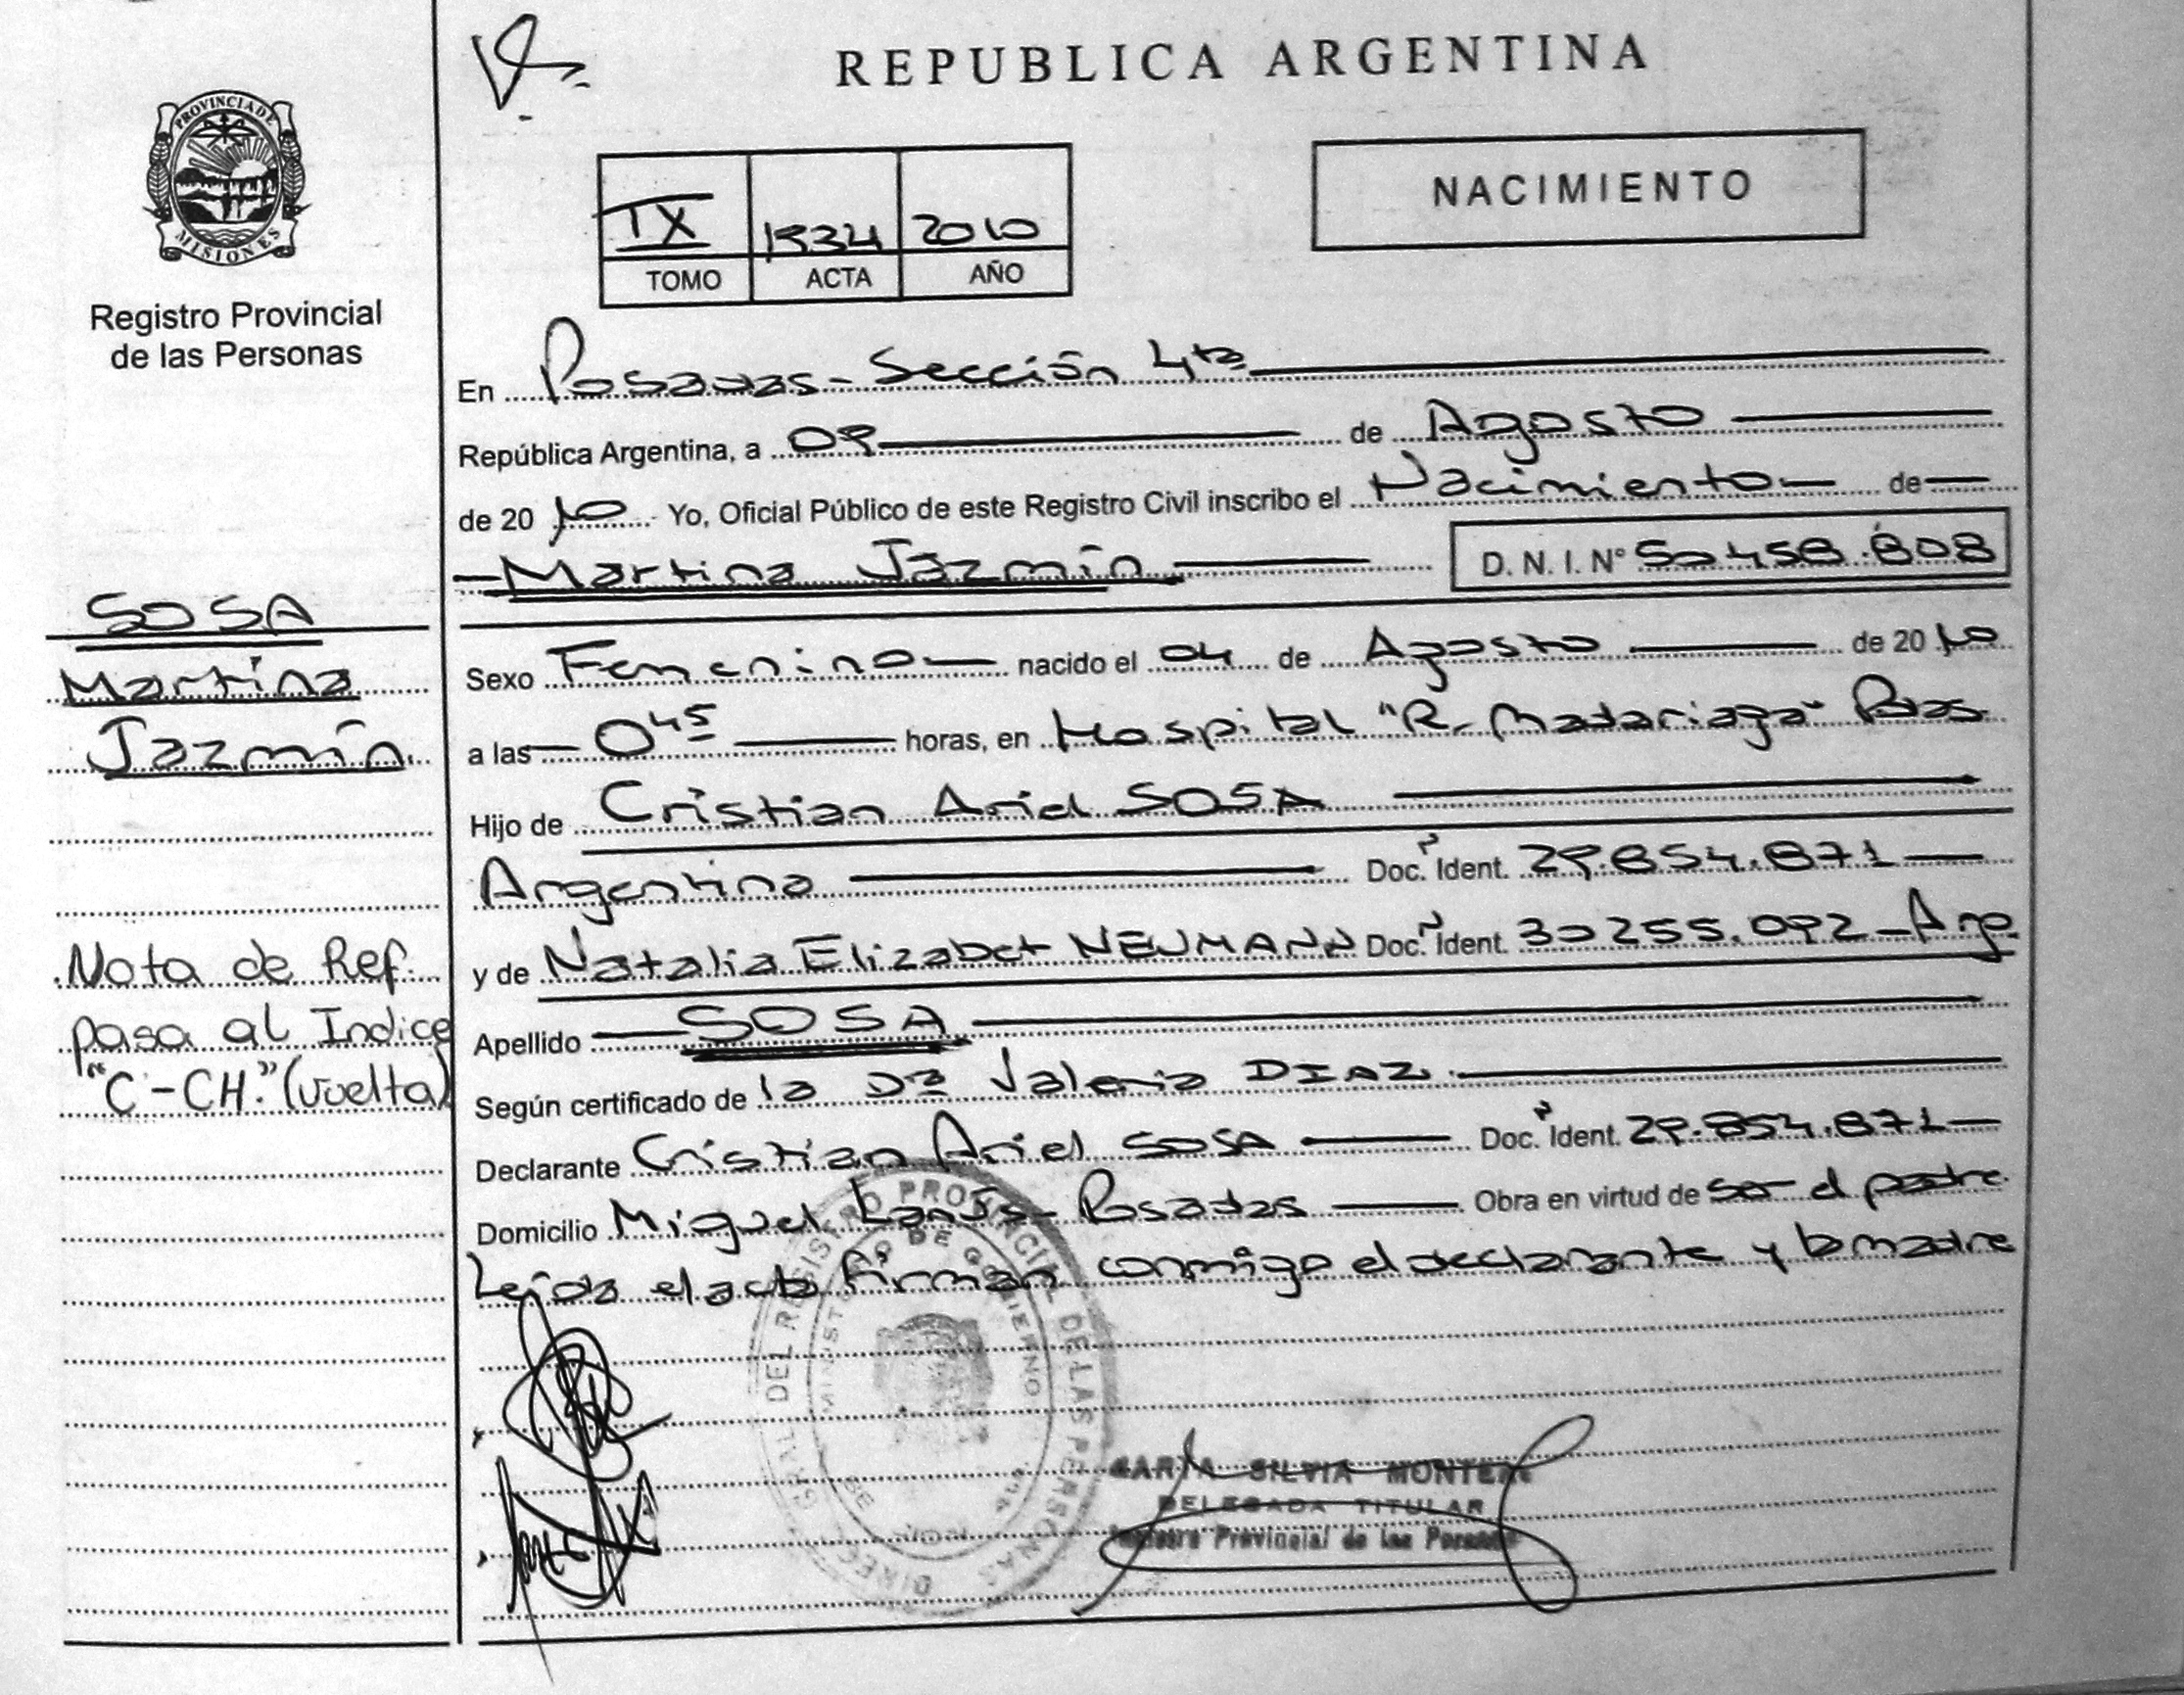 REPUBLICA ARGENTINA
PROVINCIA DE
MISIONES
Registro Provincial
de las Personas
NACIMIENTO
IX 1934 2010
TOMO ACTA AÑO
En Posadas - Sección 4ta
República Argentina, a 09 de Agosto
de 2010 Yo, Oficial Público de este Registro Civil inscribo el Nacimiento de
Martina Jazmín D. N. I. N° 50.458.808
SOSA
Martina
Jazmín
Sexo Femenino nacido el 04 de Agosto de 2010
a las 0 45 horas, en Hospital "R. Madariaga" Pdas.
Hijo de Cristian Ariel SOSA
Argentina Doc. Ident. 29.854.871
y de Natalia Elizabet NEUMANN Doc. Ident. 30255.092 - Arg.
Apellido SOSA
Según certificado de la Dra Valeria DIAZ.
Declarante Cristian Ariel SOSA Doc. Ident. 29.854.871
Domicilio Miguel Lanús - Posadas Obra en virtud de ser el padre
Leída el acta firman conmigo el declarante y la madre
Nota de Ref.
pasa al Indice
"C - CH." (vuelta)
DEL REGISTRO PROVINCIAL DE LAS PERSONAS
MINISTERIO DE GOBIERNO
MARIA SILVIA MONTERO
DELEGADA TITULAR
Registro Provincial de las Personas